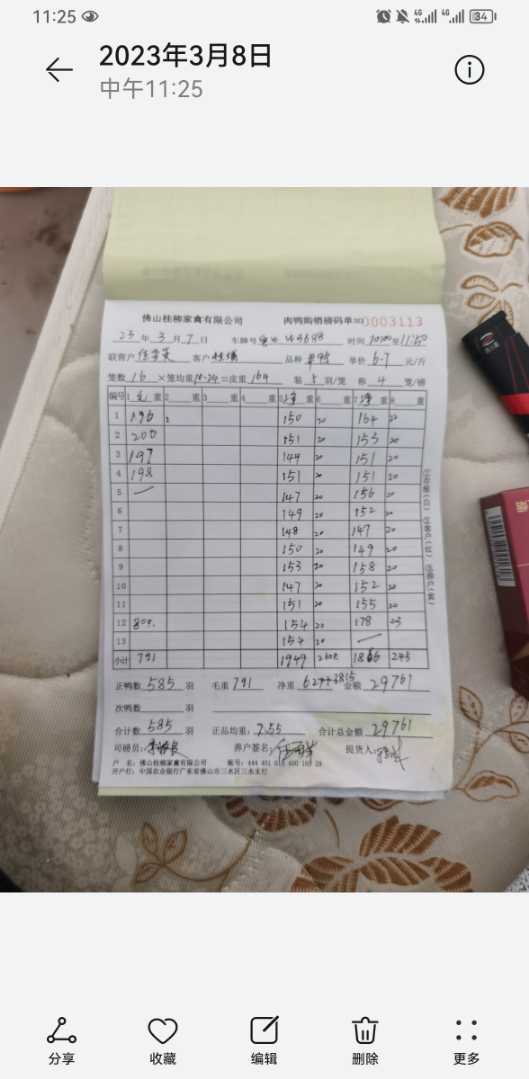 11:25
34
2023年3月8日
中午11:25
佛山桂柳家禽有限公司 肉鸭购销磅码单 NO 0003113
23 年 3 月 7 日 车牌号 时间
联营户 客户 桂 品种 单价 6.7 元/斤
笼数 16 ×笼均重 10.24 =皮重 164 装 5 羽/笼 称 4 笼/磅
编号 1 毛 重 2 重 3 重 4 重 5 净 重 6 重 7 净 重 8 重
1 196 150 20 164 20
2 200 151 20 153 20
3 197 149 20 151 20
4 198 151 20 151 20
5 147 20 156 20
6 149 20 152 20
7 148 20 147 20
8 150 20 149 20
9 153 20 158 20
10 147 20 152 20
11 151 20 155 20
12 154 20 178 23
13 154 20
小计 791 1949 260 1866 243
正鸭数 585 羽 毛重 791 净重 金额 29761
次鸭数 羽
合计数 585 羽 正品均重: 7.55 合计总金额 29761
司磅员: 养户签名: 提货人:
户 名:佛山桂柳家禽有限公司 账号:
开户行:中国农业银行广东省佛山市三水区三水支行
分享 收藏 编辑 删除 更多